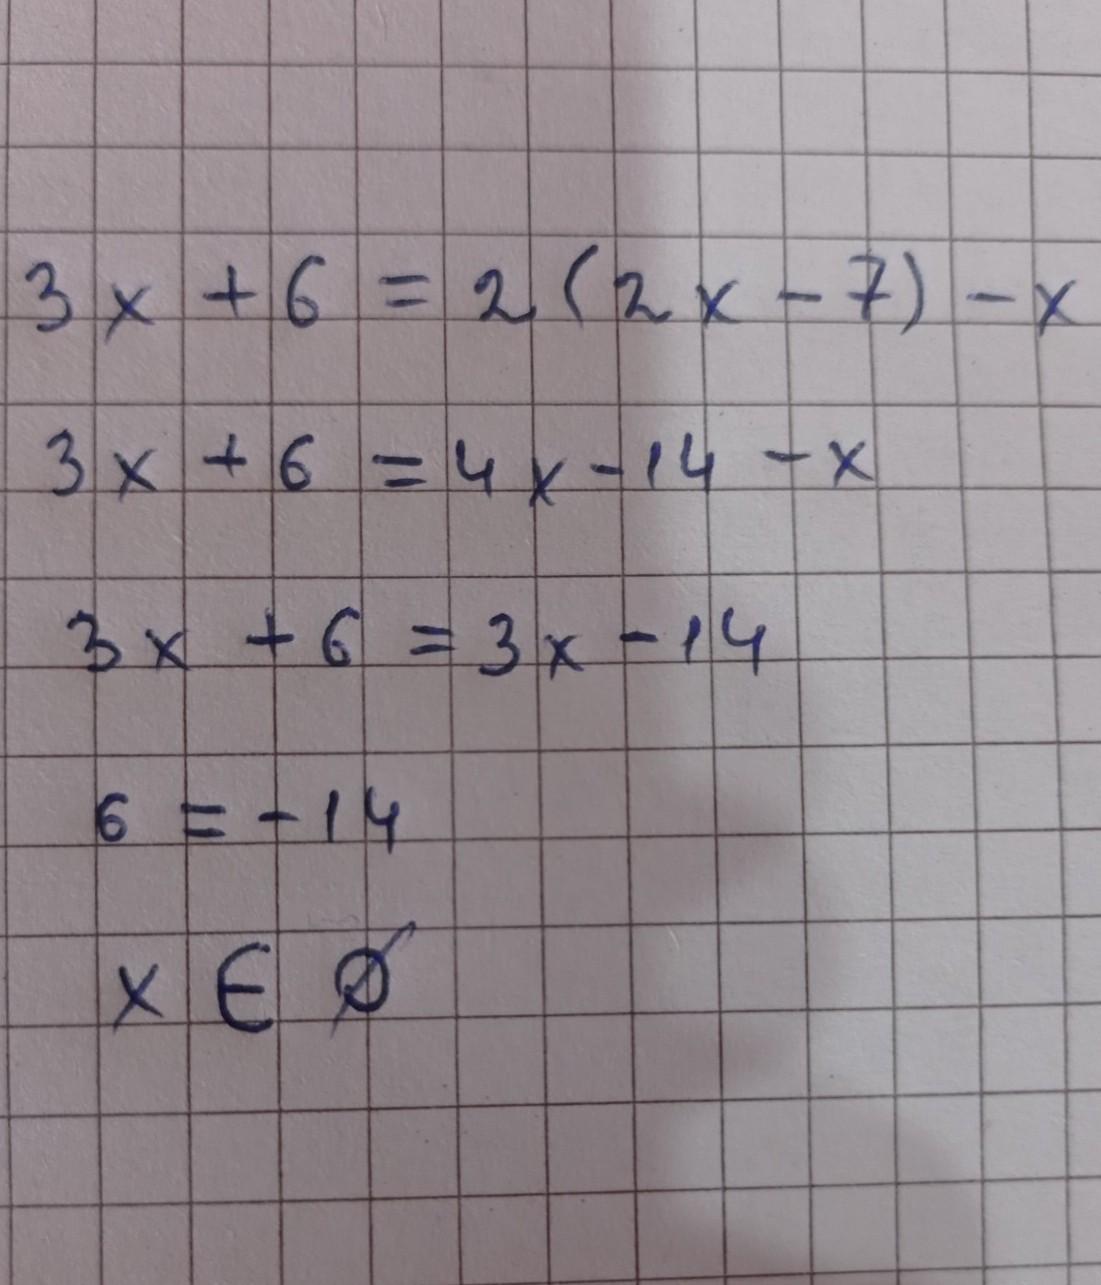 3x + 6 = 2(2x - 7) - x
3x + 6 = 4x - 14 - x
3x + 6 = 3x - 14
6 = -14
x ∈ Ø